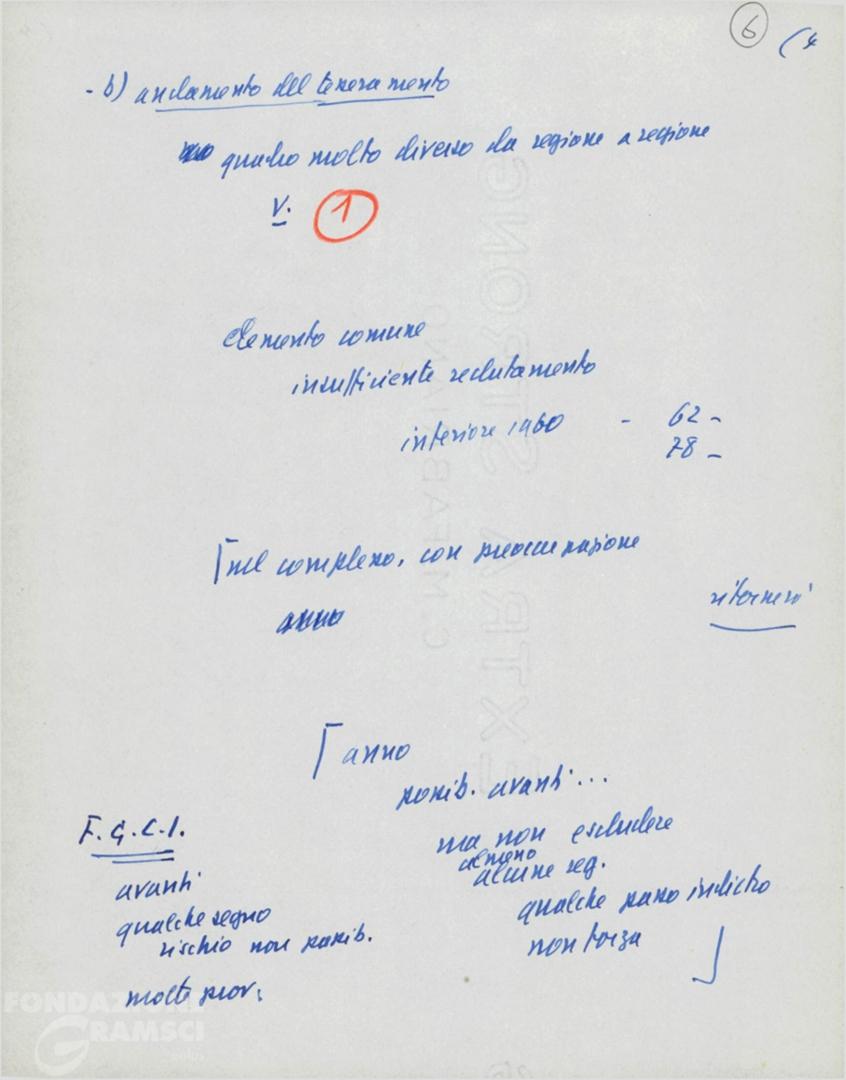 6
(4
- b) andamento del tesseramento
quadro molto diverso da regione a regione
V. 1
elemento comune
insufficiente reclutamento
inferiore 1960 - 62 -
78 -
nel complesso, con preoccupazione
anno
ritornerò
anno
possib. avanti...
ma non escludere
almeno
alcune reg.
qualche passo indietro
non forza
F.G.C.I.
avanti
qualche segno
rischio non possib.
molte prov.
C.M.FABRIANO
EXTRA STRONG
FONDAZIONE
GRAMSCI
onlus